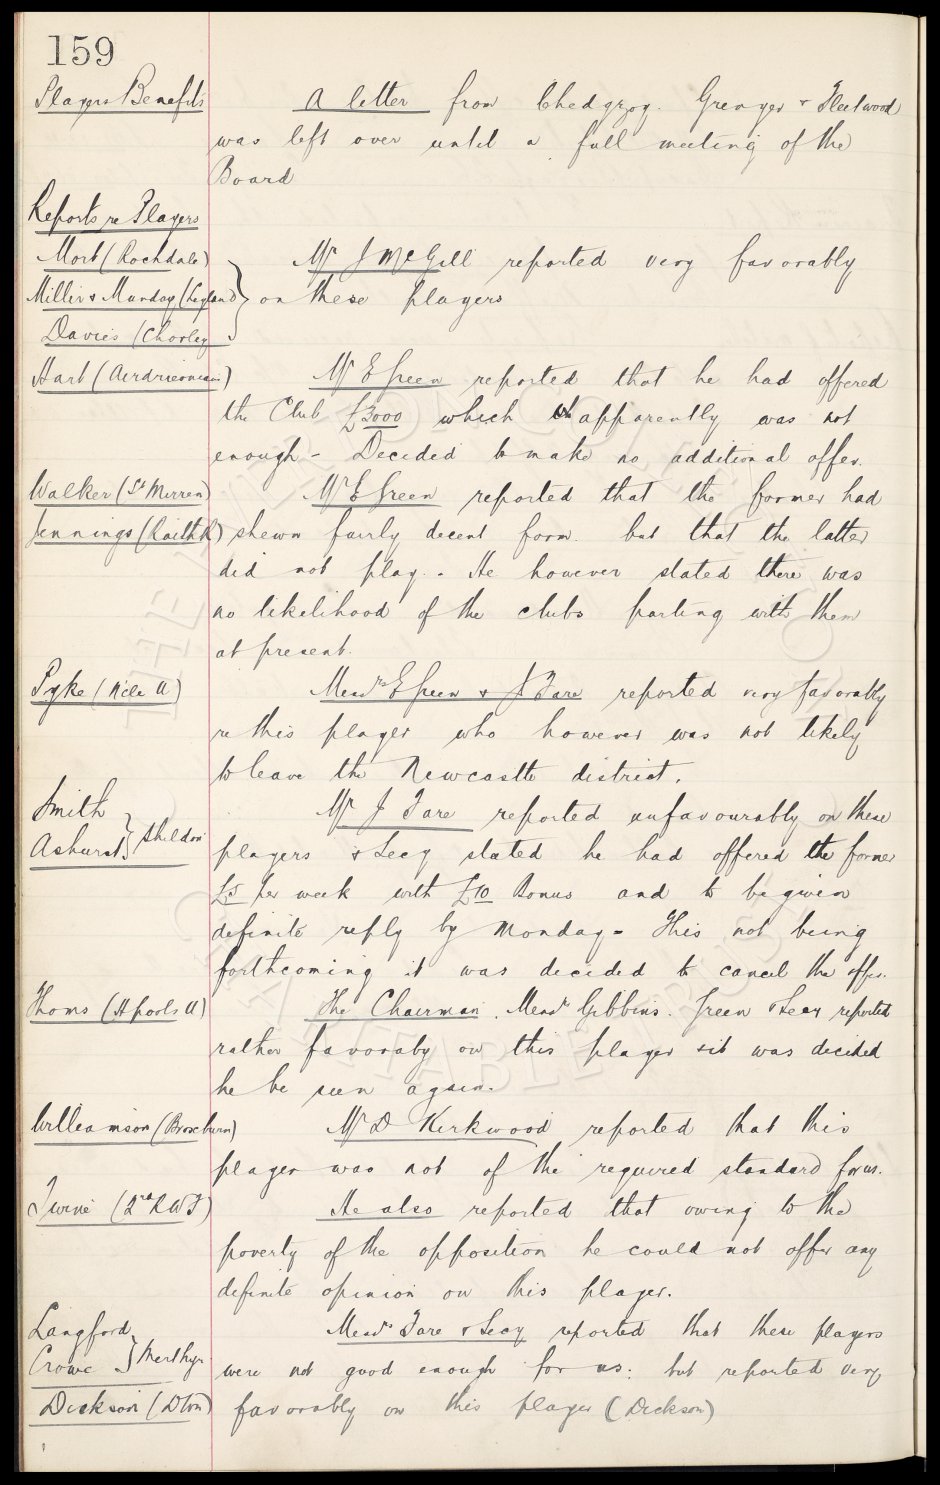 159
Players Benefits
A letter from Chedgzoy. Grenyer & Fleetwood
was left over until a full meeting of the
Board
Reports re Players
Mort (Rochdale)
Mr J McGill reported very favorably
Miller & Munday (Leyland)
on these players
Davies (Chorley
Hart (Airdrieonians)
Mr E Green reported that he had offered
the Club £3000 which apparently was not
enough - Decided to make no additional offer.
Walker (St Mirren)
Mr E Green reported that the former had
Jennings (Raith R)
shewn fairly decent form. but that the latter
did not play. - He however stated there was
no likelihood of the clubs parting with them
at present.
Pyke (N'cle U)
Messrs E Green & J Fare reported very favorably
re this player who however was not likely
to leave the Newcastle district.
Smith
Mr J Fare reported unfavourably on these
Ashurst } Shildon
players & Secy stated he had offered the former
£5 per week with £10 Bonus and to be given
definite reply by Monday - This not being
forthcoming it was decided to cancel the offer.
Thoms (H'pools U)
The Chairman. Messrs Gibbins. Green & Secy reported
rather favoraby on this player & it was decided
he be seen again.
Williamson (Broxburn)
Mr D Kirkwood reported that this
player was not of the required standard form.
Irvine (2nd RWF)
He also reported that owing to the
poverty of the opposition he could not offer any
definite opinion on this player.
Langford
Messrs Fare & Secy reported that these players
Crowe } Merthyr
were not good enough for us: but reported very
Dickson (Dton)
favorably on this player (Dickson)